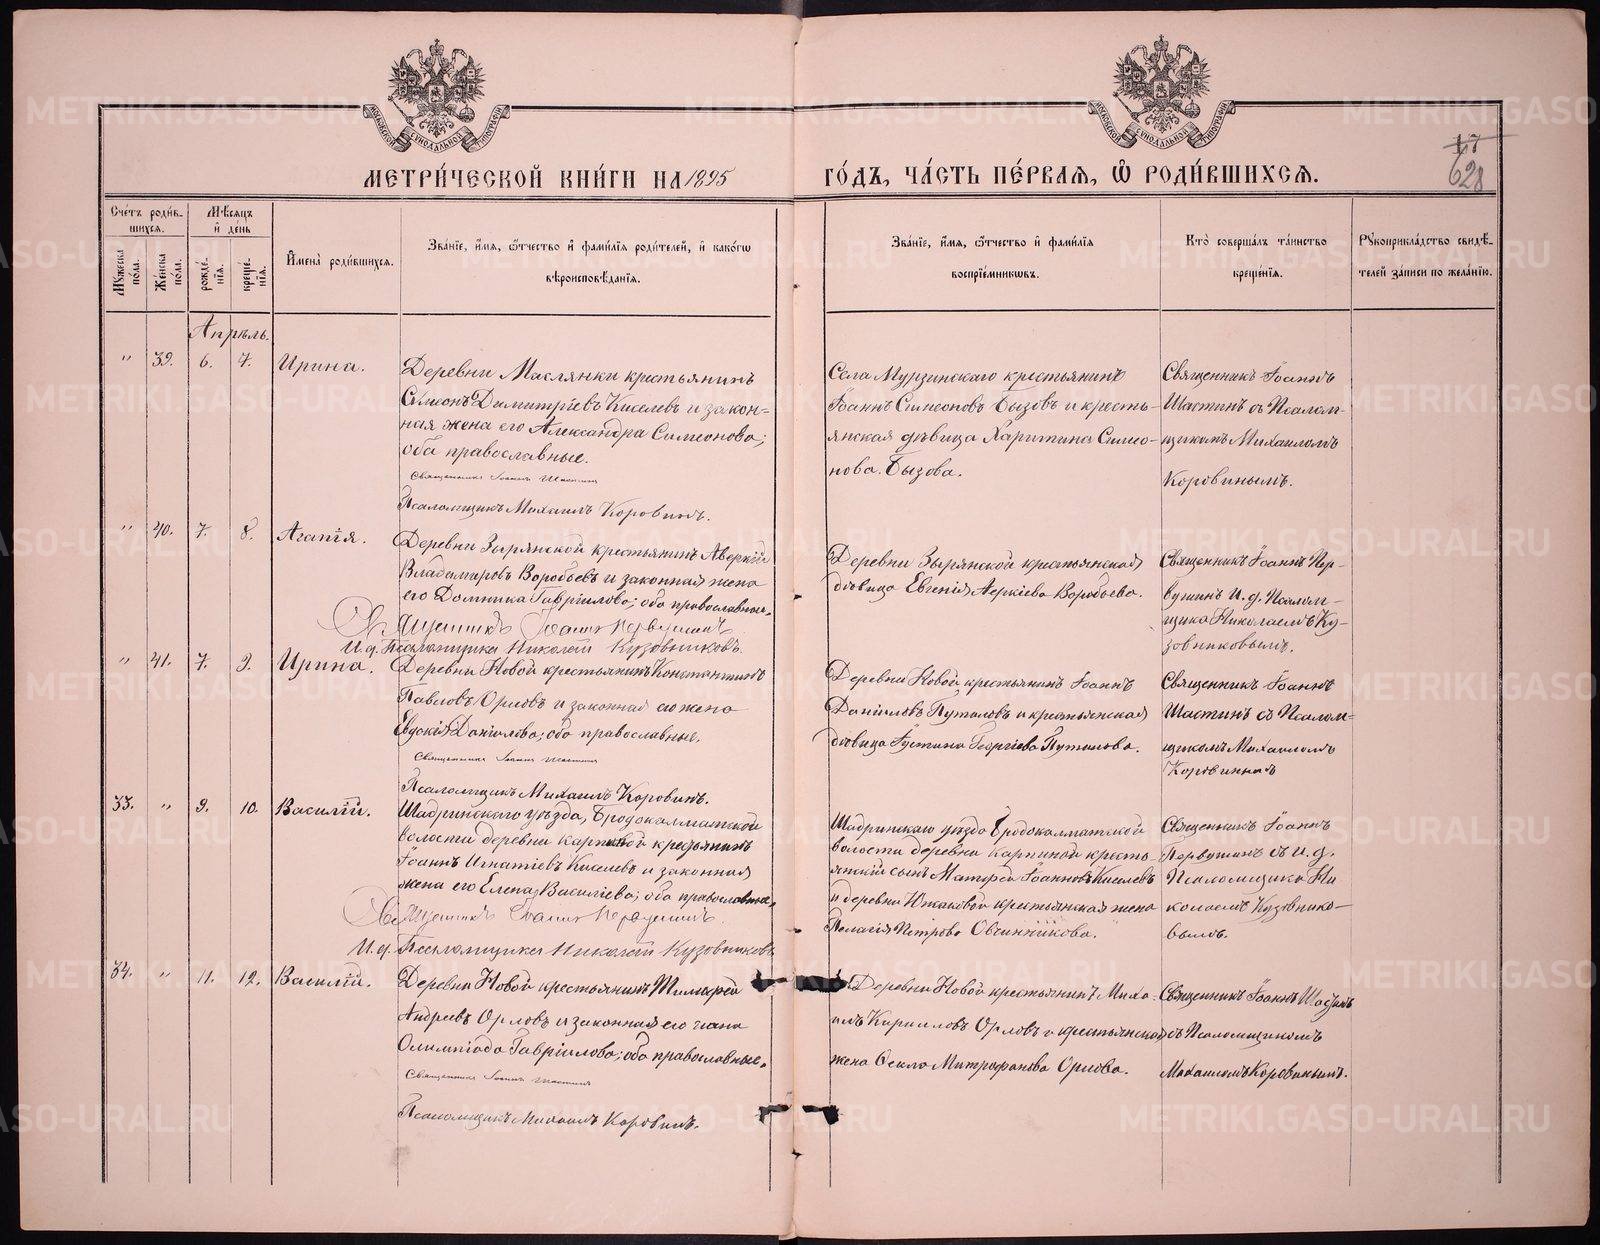 МЕТРИ́ЧЕСКОЙ КНИ́ГИ НА 1895
ГО́ДЪ, ЧА́СТЬ ПЕ́РВАЯ, Ѽ РОДИ́ВШИХСЯ.
17
628
Сче́тъ роди́в-
шихся.
Мѣ́сяцъ
и҆ де́нь
Мꙋ́жеска по́ла.
Же́нска по́ла.
рожде́-
нїѧ.
креще́-
нїѧ.
И҆мена̀ роди́вшихсѧ.
Зва́нїе, и҆́мѧ, ѻ҆́тчество и҆ фами́лїѧ роди́телей, и҆ како́гѡ
вѣроисповѣ́данїѧ.
Зва́нїе, и҆́мѧ, ѻ҆́тчество и҆ фами́лїѧ
воспрїе́мникѡвъ.
Кто̀ соверша́лъ та́инство
креще́нїѧ.
Рꙋкоприкла́дство свидѣ́-
телей за́писи по жела́нїю.
Апрѣль.
" 39. 6. 7. Ирина.
Деревни Маслянки крестьянинъ
Сѷмеонъ Димитріевъ Киселевъ и закон-
ная жена его Александра Симеонова;
оба православные.
Священникъ Іоаннъ Шастинъ
Псаломщикъ Михаилъ Коровинъ.
Села Мурзинскаго крестьянинъ
Іоаннъ Симеоновъ Бызовъ и кресть-
янская дѣвица Харитина Симео-
нова Бызова.
Священникъ Іоаннъ
Шастинъ съ Псалом-
щикомъ Михаиломъ
Коровинымъ.
" 40. 7. 8. Агапія.
Деревни Зырянской крестьянинъ Аверкій
Владимировъ Воробьевъ и законная жена
его Домника Гавріилова; оба православные.
Священникъ Іоаннъ Первушинъ
И. д. Псаломщика Николай Кузовниковъ.
Деревни Зырянской крестьянская
дѣвица Евгенія Аверкіева Воробьева.
Священникъ Іоаннъ Пер-
вушинъ И. д. Псалом-
щика Николаемъ Ку-
зовниковымъ.
" 41. 7. 9. Ирина.
Деревни Новой крестьянинъ Константинъ
Павловъ Орловъ и законная его жена
Евдокія Даніилова; оба православные.
Священникъ Іоаннъ Шастинъ
Псаломщикъ Михаилъ Коровинъ.
Деревни Новой крестьянинъ Іоаннъ
Данииловъ Путиловъ и крестьянская
дѣвица Іустина Георгіева Путилова.
Священникъ Іоаннъ
Шастинъ съ Псалом-
щикомъ Михаиломъ
Коровинымъ
33. " 9. 10. Василій.
Шадринскаго уѣзда, Бродокалматской
волости деревни Карпиной крестьянинъ
Іоаннъ Игнатіевъ Киселевъ и законная
жена его Елена Василіева; оба православные.
Священникъ Іоаннъ Первушинъ.
И. д. Псаломщика Николай Кузовниковъ
Шадринскаго уѣзда Бродокалматской
волости деревни Карпиной кресть-
янскій сынъ Матфей Іоанновъ Киселевъ
и деревни крестьянская жена
Пелагія Петрова Овчинникова.
Священникъ Іоаннъ
Первушинъ съ и. д.
Псаломщика Ни-
колаемъ Кузовнико-
вымъ.
34. " 11. 12. Василій.
Деревни Новой крестьянинъ Тимофей
Андреевъ Орловъ и законная его жена
Олимпіада Гавріилова; оба православные.
Священникъ Іоаннъ Шастинъ
Псаломщикъ Михаилъ Коровинъ.
Деревни Новой крестьянинъ Миха-
илъ Кирилловъ Орловъ и крестьянская
жена Ѳекла Митрофанова Орлова.
Священникъ Іоаннъ Шастинъ
съ Псаломщикомъ
Михаиломъ Коровинымъ.